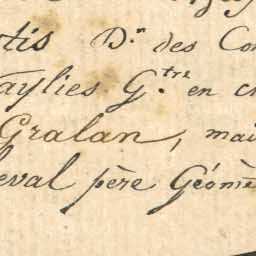 tis D.n des Con
aylies G.tre en c
Gralan, mai
eval père Géomè